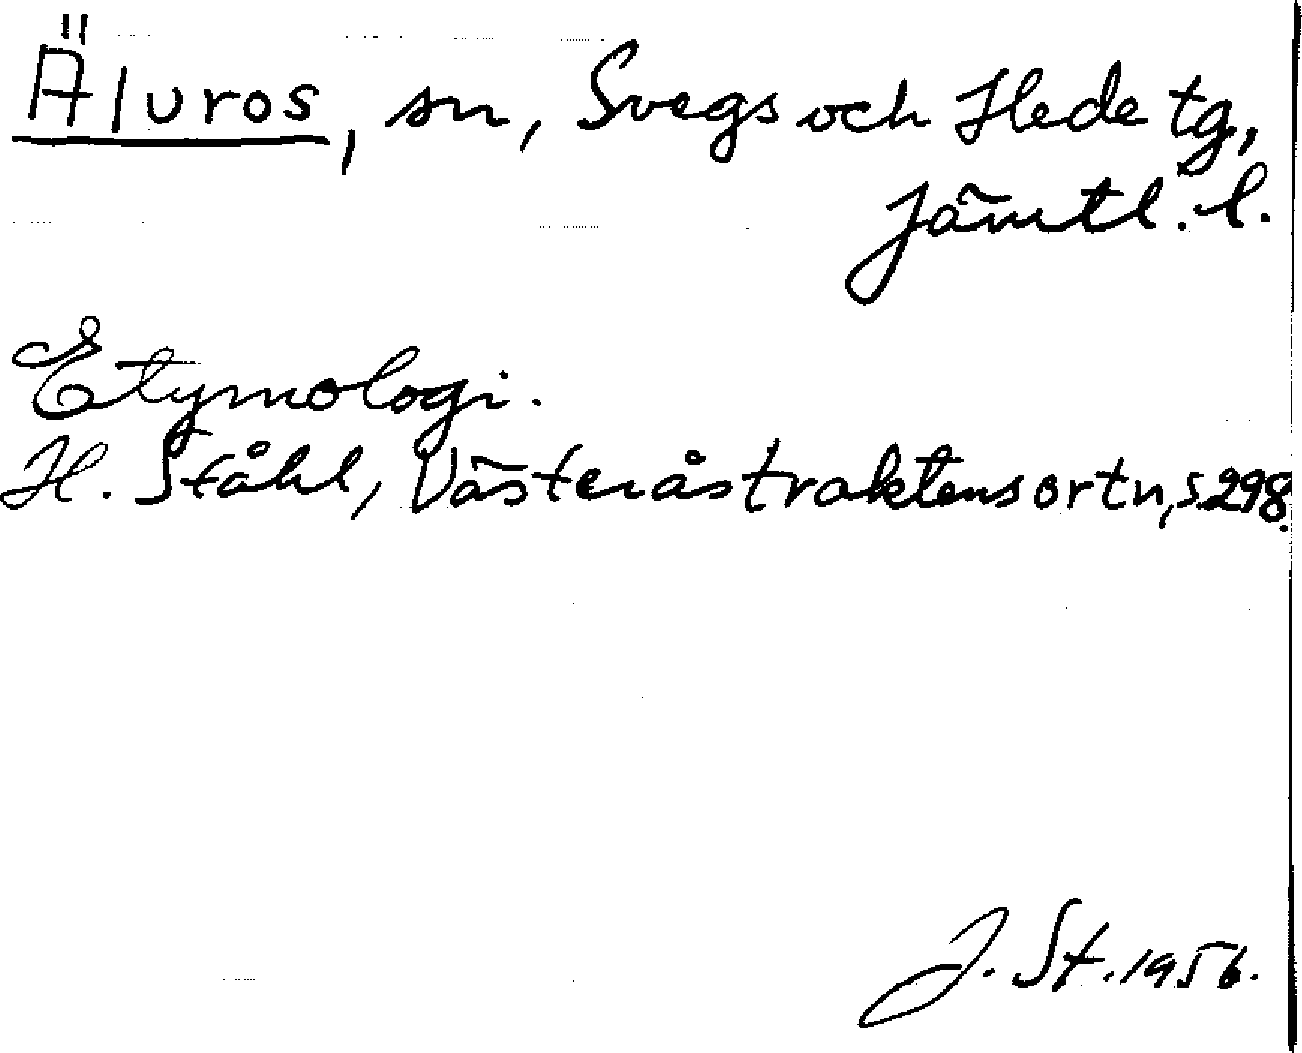 Äluros, sn, Svegs och Hede tg,
Jämtl. l.
Etymologi.
H. Ståhl, Västeråstraktens ortn, s. 298.
J. St. 1956.